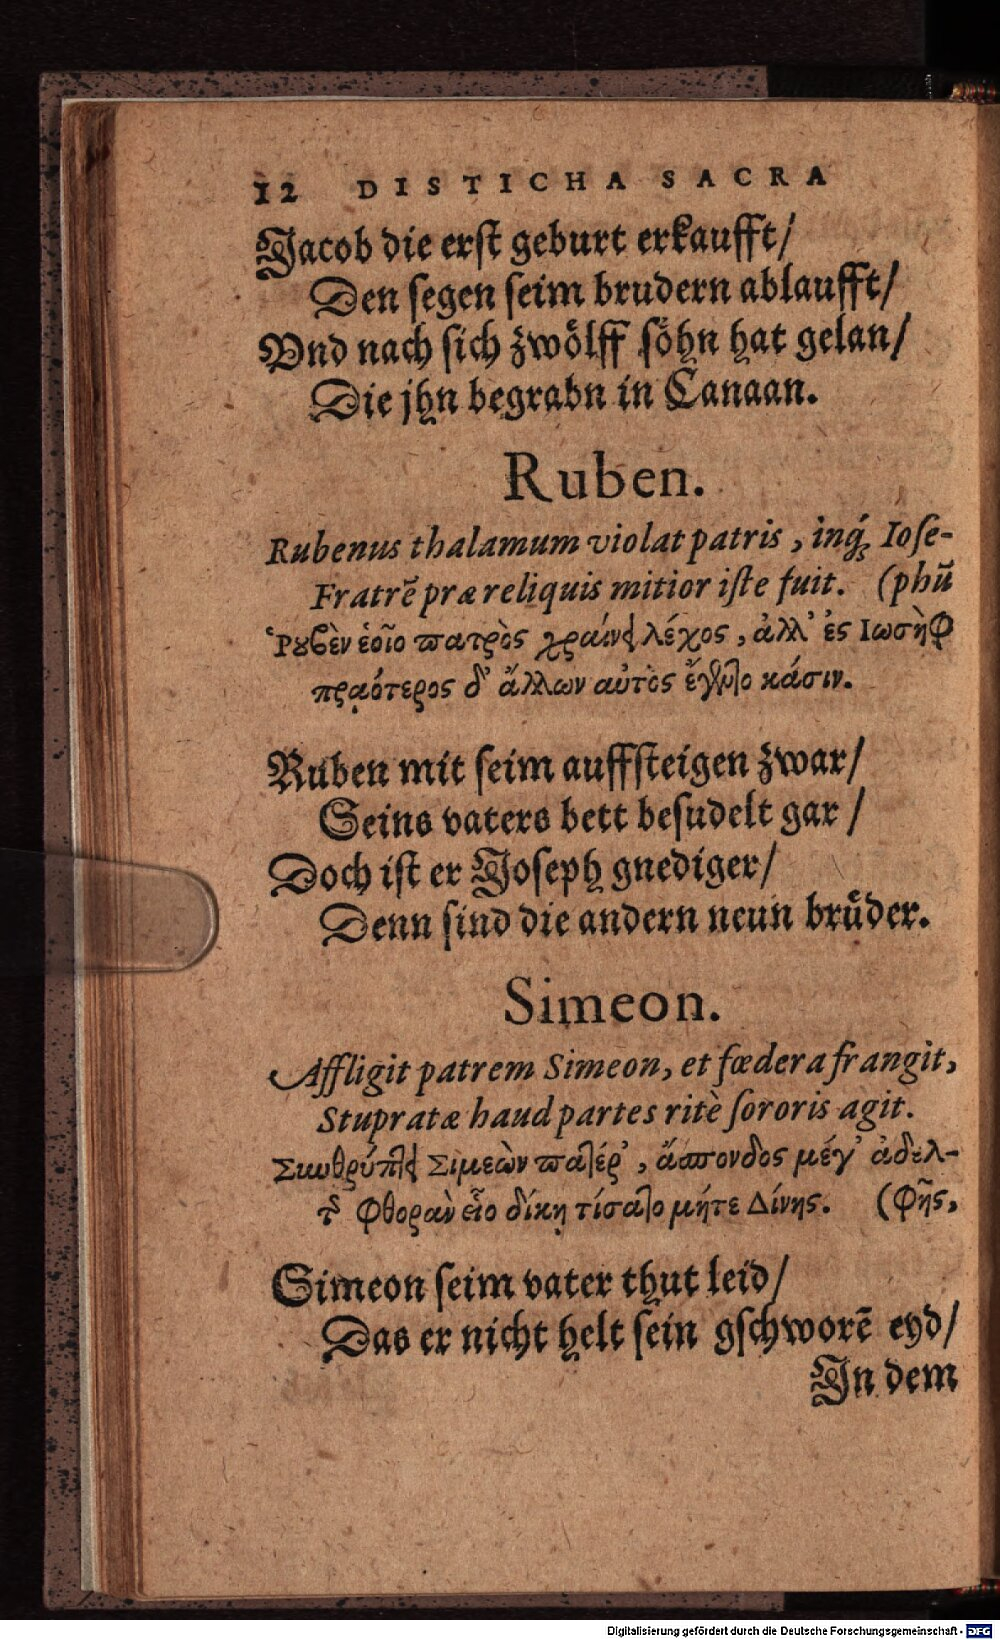 12 DISTICHA SACRA
Jacob die erst geburt erkaufft/
Den segen seim brudern ablaufft/
Vnd nach sich zwoͤlff soͤhn hat gelan/
Die jhn begrabn in Canaan.
Ruben.
Rubenus thalamum violat patris, inq́; Iose-
Fratrẽ præ reliquis mitior iste fuit. (phũ
Ῥουβὲν ἑοῖο πατρὸς χραίνει λέχος, ἀλλ' ἐς Ιωσὴφ
πραότερος δ' ἄλλων αὐτὸς ἔγεντο κάσιν.
Ruben mit seim auffsteigen zwar/
Seins vaters bett besudelt gar/
Doch ist er Joseph gnediger/
Denn sind die andern neun bruͤder.
Simeon.
Affligit patrem Simeon, et fœdera frangit,
Stupratæ haud partes ritè sororis agit.
Σκυθρύπτει Σιμεὼν πατέρ', ἄσπονδος μέγ' ἀδελ-
φθορὰν εἷο δίκῃ τίσατο μήτε Δίνης. (φῆς,
Simeon seim vater thut leid/
Das er nicht helt sein gschworẽ eyd/
In dem
Digitalisierung gefördert durch die Deutsche Forschungsgemeinschaft - DFG